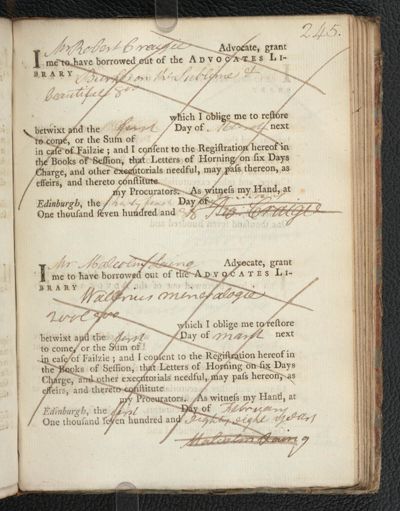 245.
I Mr Robert Craigie Advocate, grant
me to have borrowed out of the ADVOCATES LI-
BRARY Burke on the Sublime &
beautiful 8vo
which I oblige me to reſtore
betwixt and the first Day of March next
to come, or the Sum of
in caſe of Failzie; and I conſent to the Regiſtration hereof in
the Books of Seſſion, that Letters of Horning on ſix Days
Charge, and other executorials needful, may paſs thereon, as
effeirs, and thereto conſtitute
my Procurators. As witneſs my Hand, at
Edinburgh, the Day of
One thouſand ſeven hundred and Ro: Craigie
I Mr Malcolm Laing Advocate, grant
me to have borrowed out of the ADVOCATES LI-
BRARY
Wallerius mineralogie
2 vol 8vo
which I oblige me to reſtore
betwixt and the first Day of March next
to come, or the Sum of
in caſe of Failzie; and I conſent to the Regiſtration hereof in
the Books of Seſſion, that Letters of Horning on ſix Days
Charge, and other executorials needful, may paſs hereon, as
effeirs, and thereto conſtitute
my Procurators. As witneſs my Hand, at
Edinburgh, the first Day of February
One thouſand ſeven hundred and eighty eight years
Malcolm Laing